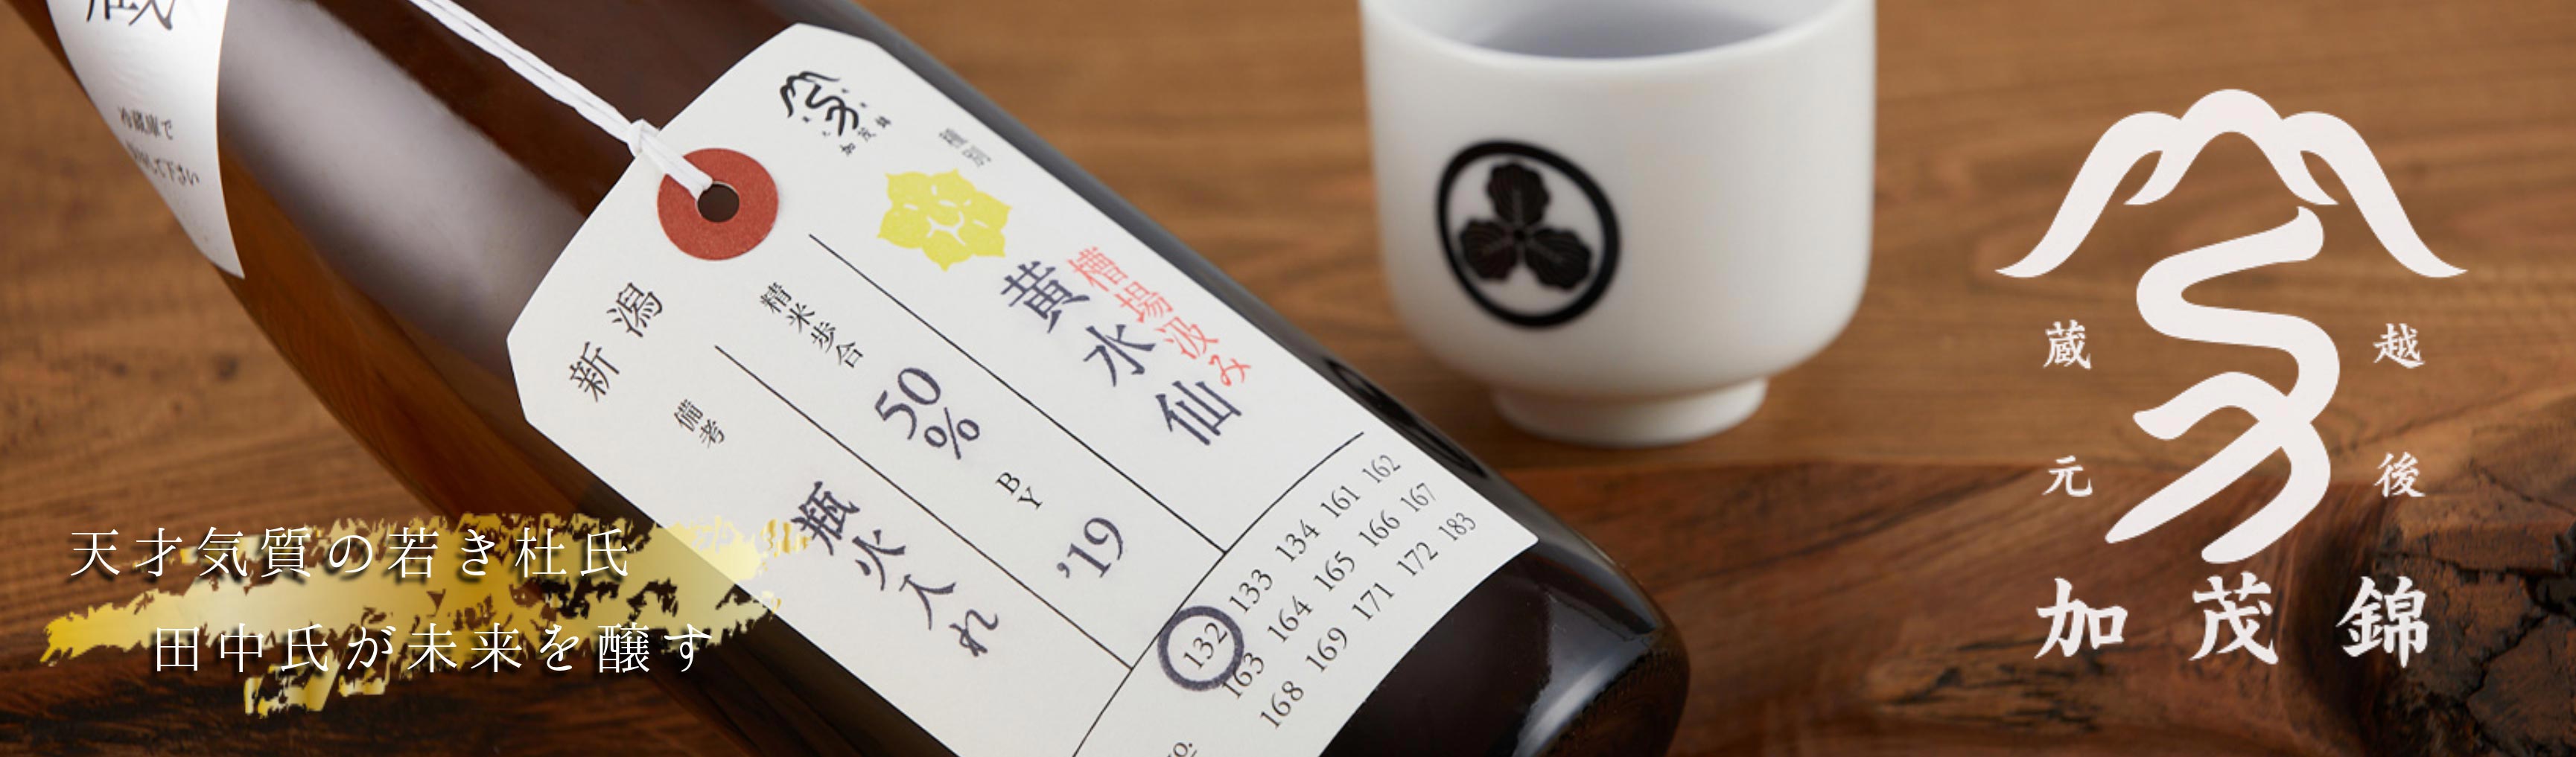 蔵
冷蔵庫で
加茂錦
種別
槽場汲み
黄水仙
精米歩合
50%
BY
'19
新潟
備考
瓶火入れ
132 133 134 161 162
163 164 165 166 167
168 169 171 172 183
天才気質の若き杜氏
田中氏が未来を醸す
越後
蔵元
加茂錦